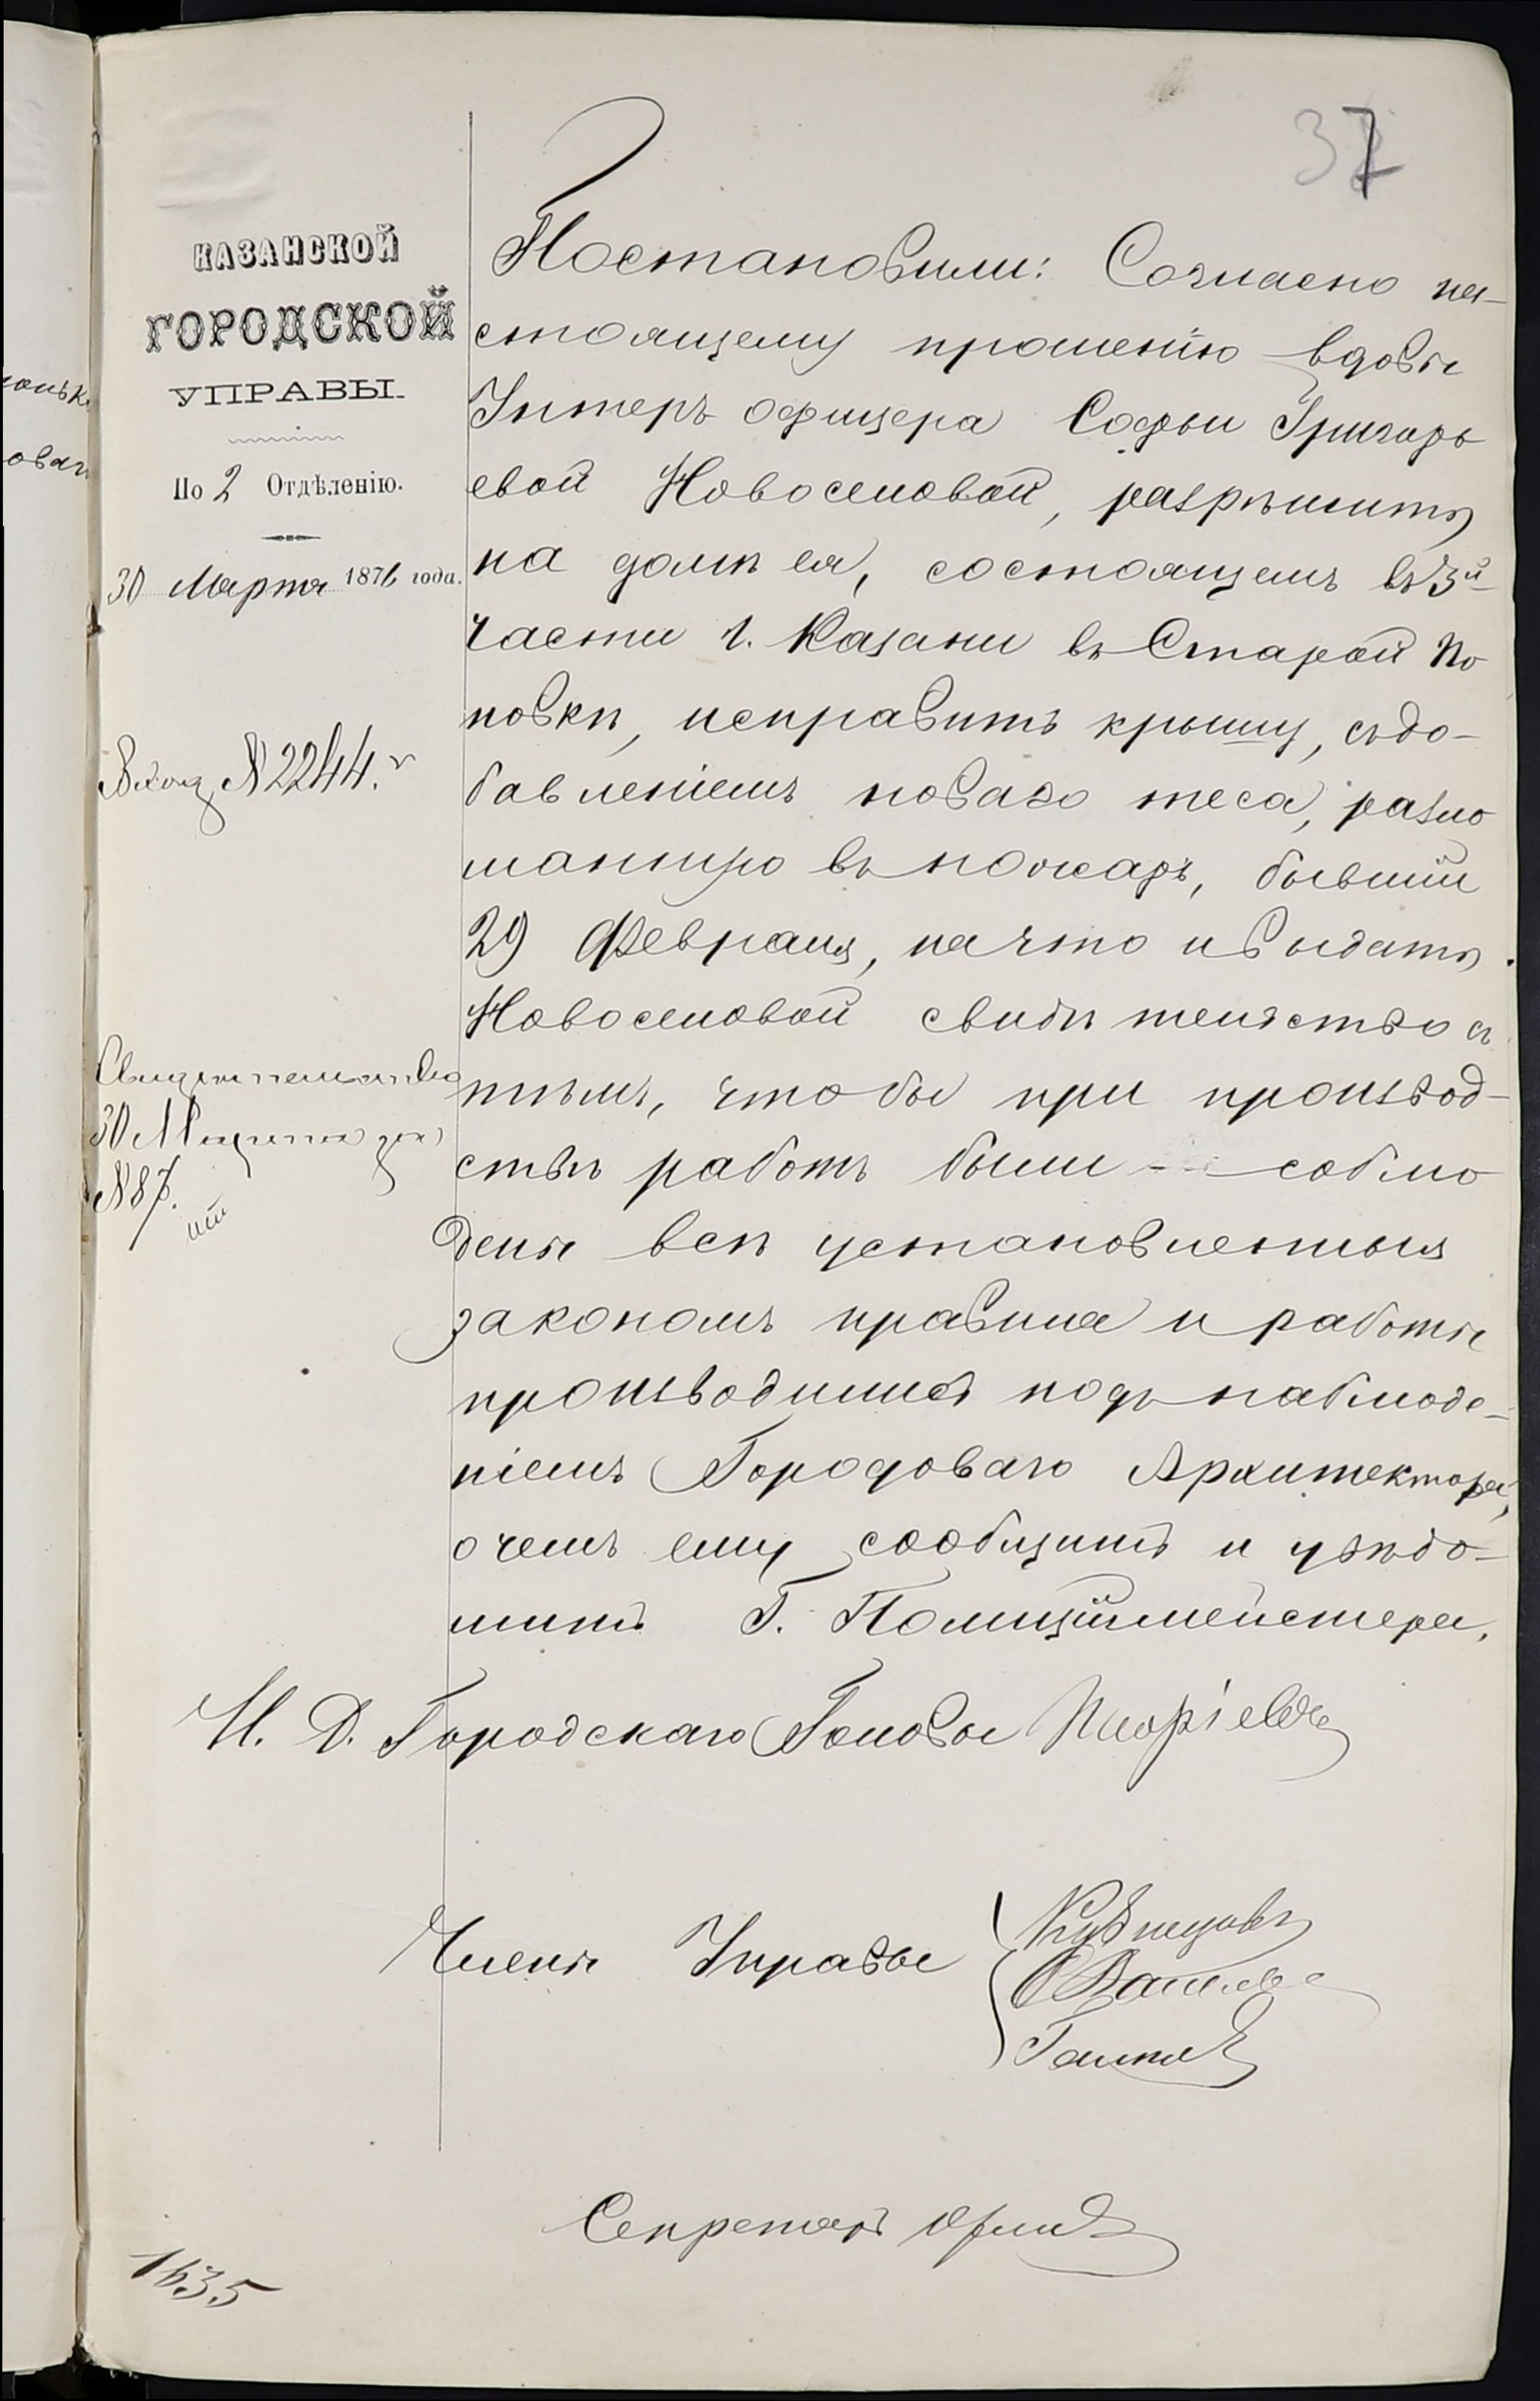 37
КАЗАНСКОЙ
ГОРОДСКОЙ
УПРАВЫ.
По 2 Отдѣленію.
30 Марта 1876 года.
Вход № 2244.
Свидѣтельство
30 Марта за
№ 87.
Постановили: Согласно на-
стоящему прошенію вдовы
Унтеръ офицера Софьи Григорь
евой Новоселовой, разрѣшить
на домѣ ея, состоящемъ въ 3й
части г. Казани въ Старой По
повкѣ, исправить крышу, съ до-
бавленіемъ новаго теса, разло
манную въ пожаръ, бывшій
29 Февраля, на что и выдать
Новоселовой свидѣтельство съ
тѣмъ, чтобы при производ-
ствѣ работъ были соблю
дены всѣ установленныя
закономъ правила и работы
производились подъ наблюде-
ніемъ Городоваго Архитектора,
о чемъ ему сообщить и увѣдо-
мить Г. Полиціймейстера.
И. Д. Городскаго Головы
Члены Управы
Кузнецовъ
Секретарь
1635